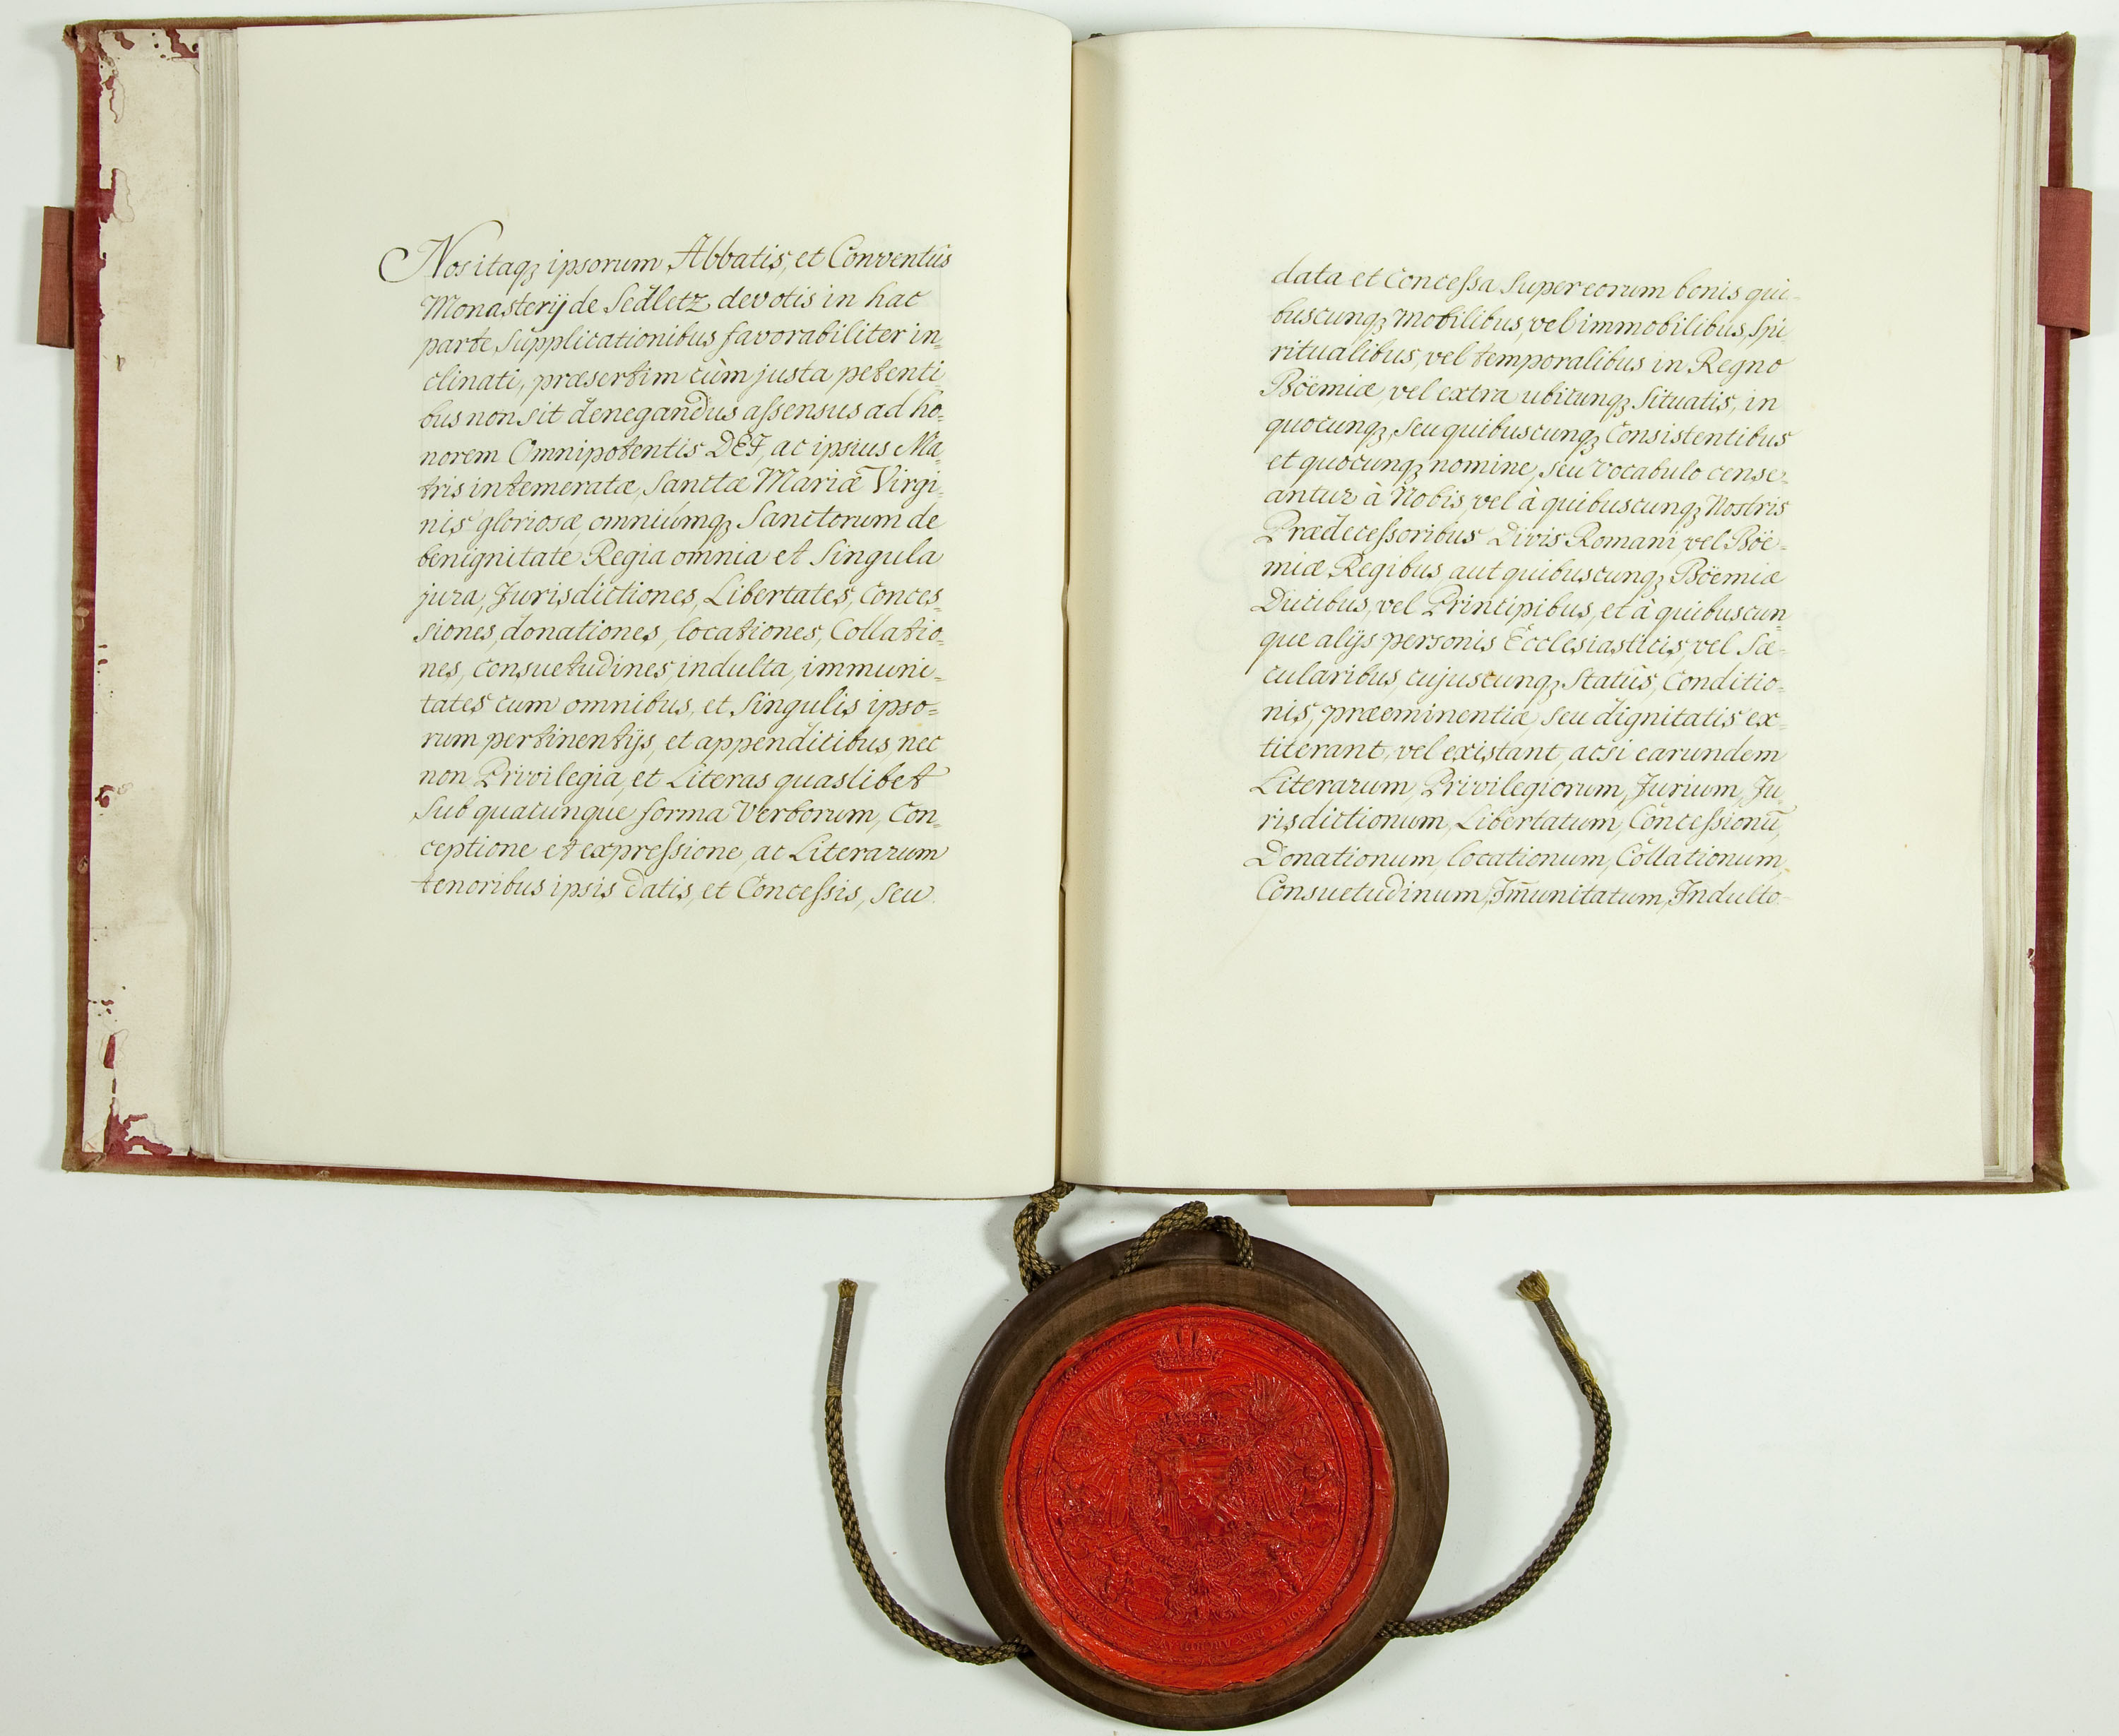 Nos itaqȝ ipsorum Abbatis, et Conventûs
Monasterij de Sedletz devotis in hac
parte Supplicationibus favorabiliter in=
clinati, præsertim cùm justa petenti=
bus non sit denegandus assensus ad ho=
norem Omnipotentis DEI, ac ipsius Ma=
tris intemeratæ, Sanctæ Mariæ Virgi=
nis gloriosæ, omniúmqȝ Sanctorum de
benignitate Regia omnia et Singula
jura, Jurisdictiones, Libertates, Conces=
siones, donationes, locationes, Collatio=
nes, consuetudines, indulta, immuni=
tates cum omnibus, et Singulis ipso=
rum pertinentijs, et appenditibus nec
non Privilegia, et Literas quaslibet
Sub quacunque forma Verborum, Con=
ceptione et expressione, ac Literarum
tenoribus ipsis datis, et Concessis, seu
data et Concessa Super eorum bonis qui=
buscunqȝ Mobilibus, vel immobilibus, Spi
ritualibus, vel temporalibus in Regno
Böemiæ, vel extra ubicunqȝ Situatis, in
quocunqȝ, seu quibuscunqȝ Consistentibus
et quocunqȝ nomine, seu Vocabulo cense=
antur à Nobis, vel à quibuscunqȝ Nostris
Prædecessoribus Divis Romani, vel Böe=
miæ Regibus, aut quibuscunqȝ Böemiæ
Ducibus, vel Principibus, et à quibuscun
que alijs personis Ecclesiasticis, vel Sæ=
cularibus, cujuscunqȝ Statûs, Conditio=
nis, præeminentiæ, seu dignitatis ex=
titerant, vel existant, acsi earundem
Literarum, Privilegiorum, Jurium, Ju
risdictionum, Libertatum, Concessionū,
Donationum, locationum, Collationum,
Consuetudinum, Im̄unitatum, Indulto=